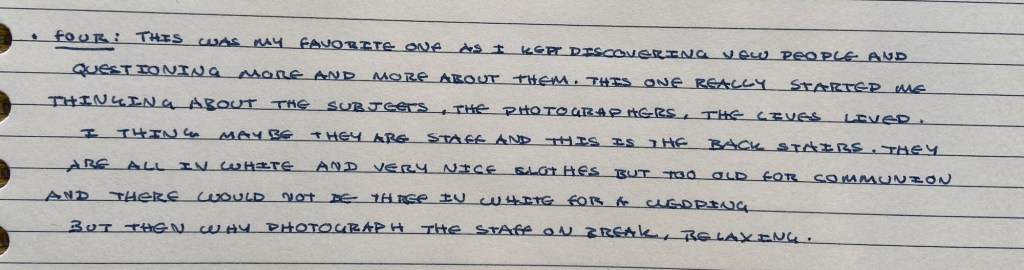 • FOUR: THIS WAS MY FAVORITE ONE AS I KEPT DISCOVERING NEW PEOPLE AND
QUESTIONING MORE AND MORE ABOUT THEM. THIS ONE REALLY STARTED ME
THINKING ABOUT THE SUBJECTS, THE PHOTOGRAPHERS, THE LIVES LIVED.
I THINK MAYBE THEY ARE STAFF AND THIS IS THE BACK STAIRS. THEY
ARE ALL IN WHITE AND VERY NICE CLOTHES BUT TOO OLD FOR COMMUNION
AND THERE WOULD NOT BE THREE IN WHITE FOR A WEDDING
BUT THEN WHY PHOTOGRAPH THE STAFF ON BREAK, RELAXING.